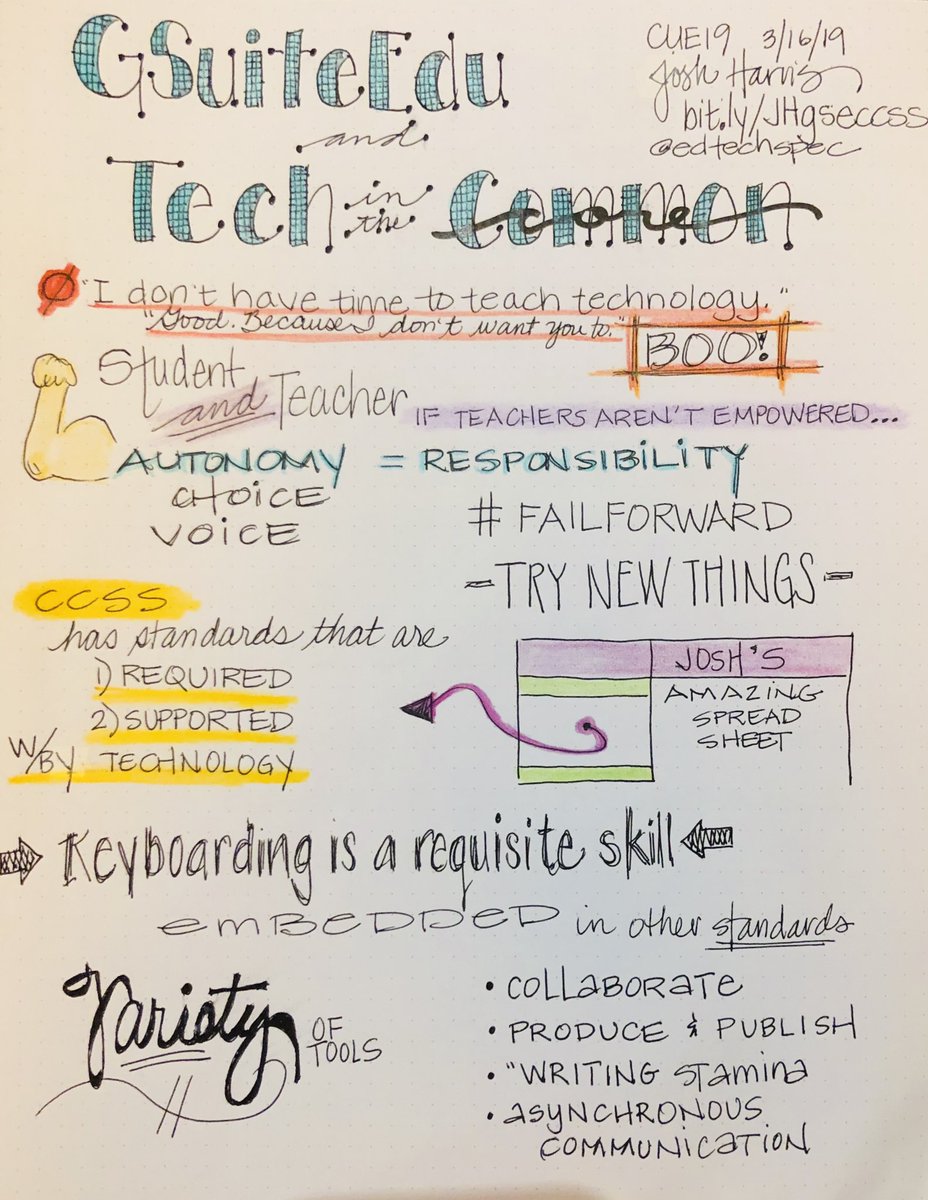 GSuiteEdu
and
Tech in the Common
core
CUE19 3/16/19
Josh Harris
bit.ly/JHgseccss
@edtechspec
"I don't have time to teach technology."
"Good. Because I don't want you to."
BOO!
Student
and Teacher
IF TEACHERS AREN'T EMPOWERED...
AUTONOMY = RESPONSIBILITY
CHOICE
VOICE
# FAILFORWARD
-TRY NEW THINGS-
CCSS
has standards that are
1) REQUIRED
2) SUPPORTED
W/BY TECHNOLOGY
JOSH'S
AMAZING
SPREAD
SHEET
Keyboarding is a requisite skill
EMBEDDED in other standards
Variety
OF
TOOLS
• COLLABORATE
• PRODUCE & PUBLISH
• "WRITING STAMINA
• ASYNCHRONOUS
COMMUNICATION